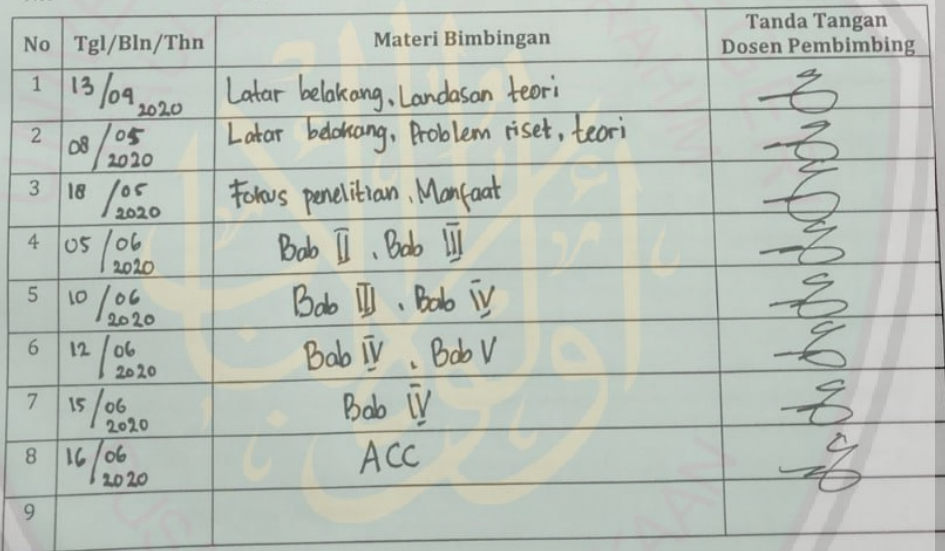 No Tgl/Bln/Thn Materi Bimbingan Tanda Tangan Dosen Pembimbing
1 13/09 2020 Latar belakang, Landasan teori
2 08/05 2020 Latar belakang, Problem riset, teori
3 18/05 2020 Fokus penelitian, Manfaat
4 05/06 2020 Bab II, Bab III
5 10/06 2020 Bab III, Bab IV
6 12/06 2020 Bab IV, Bab V
7 15/06 2020 Bab IV
8 16/06 2020 ACC
9